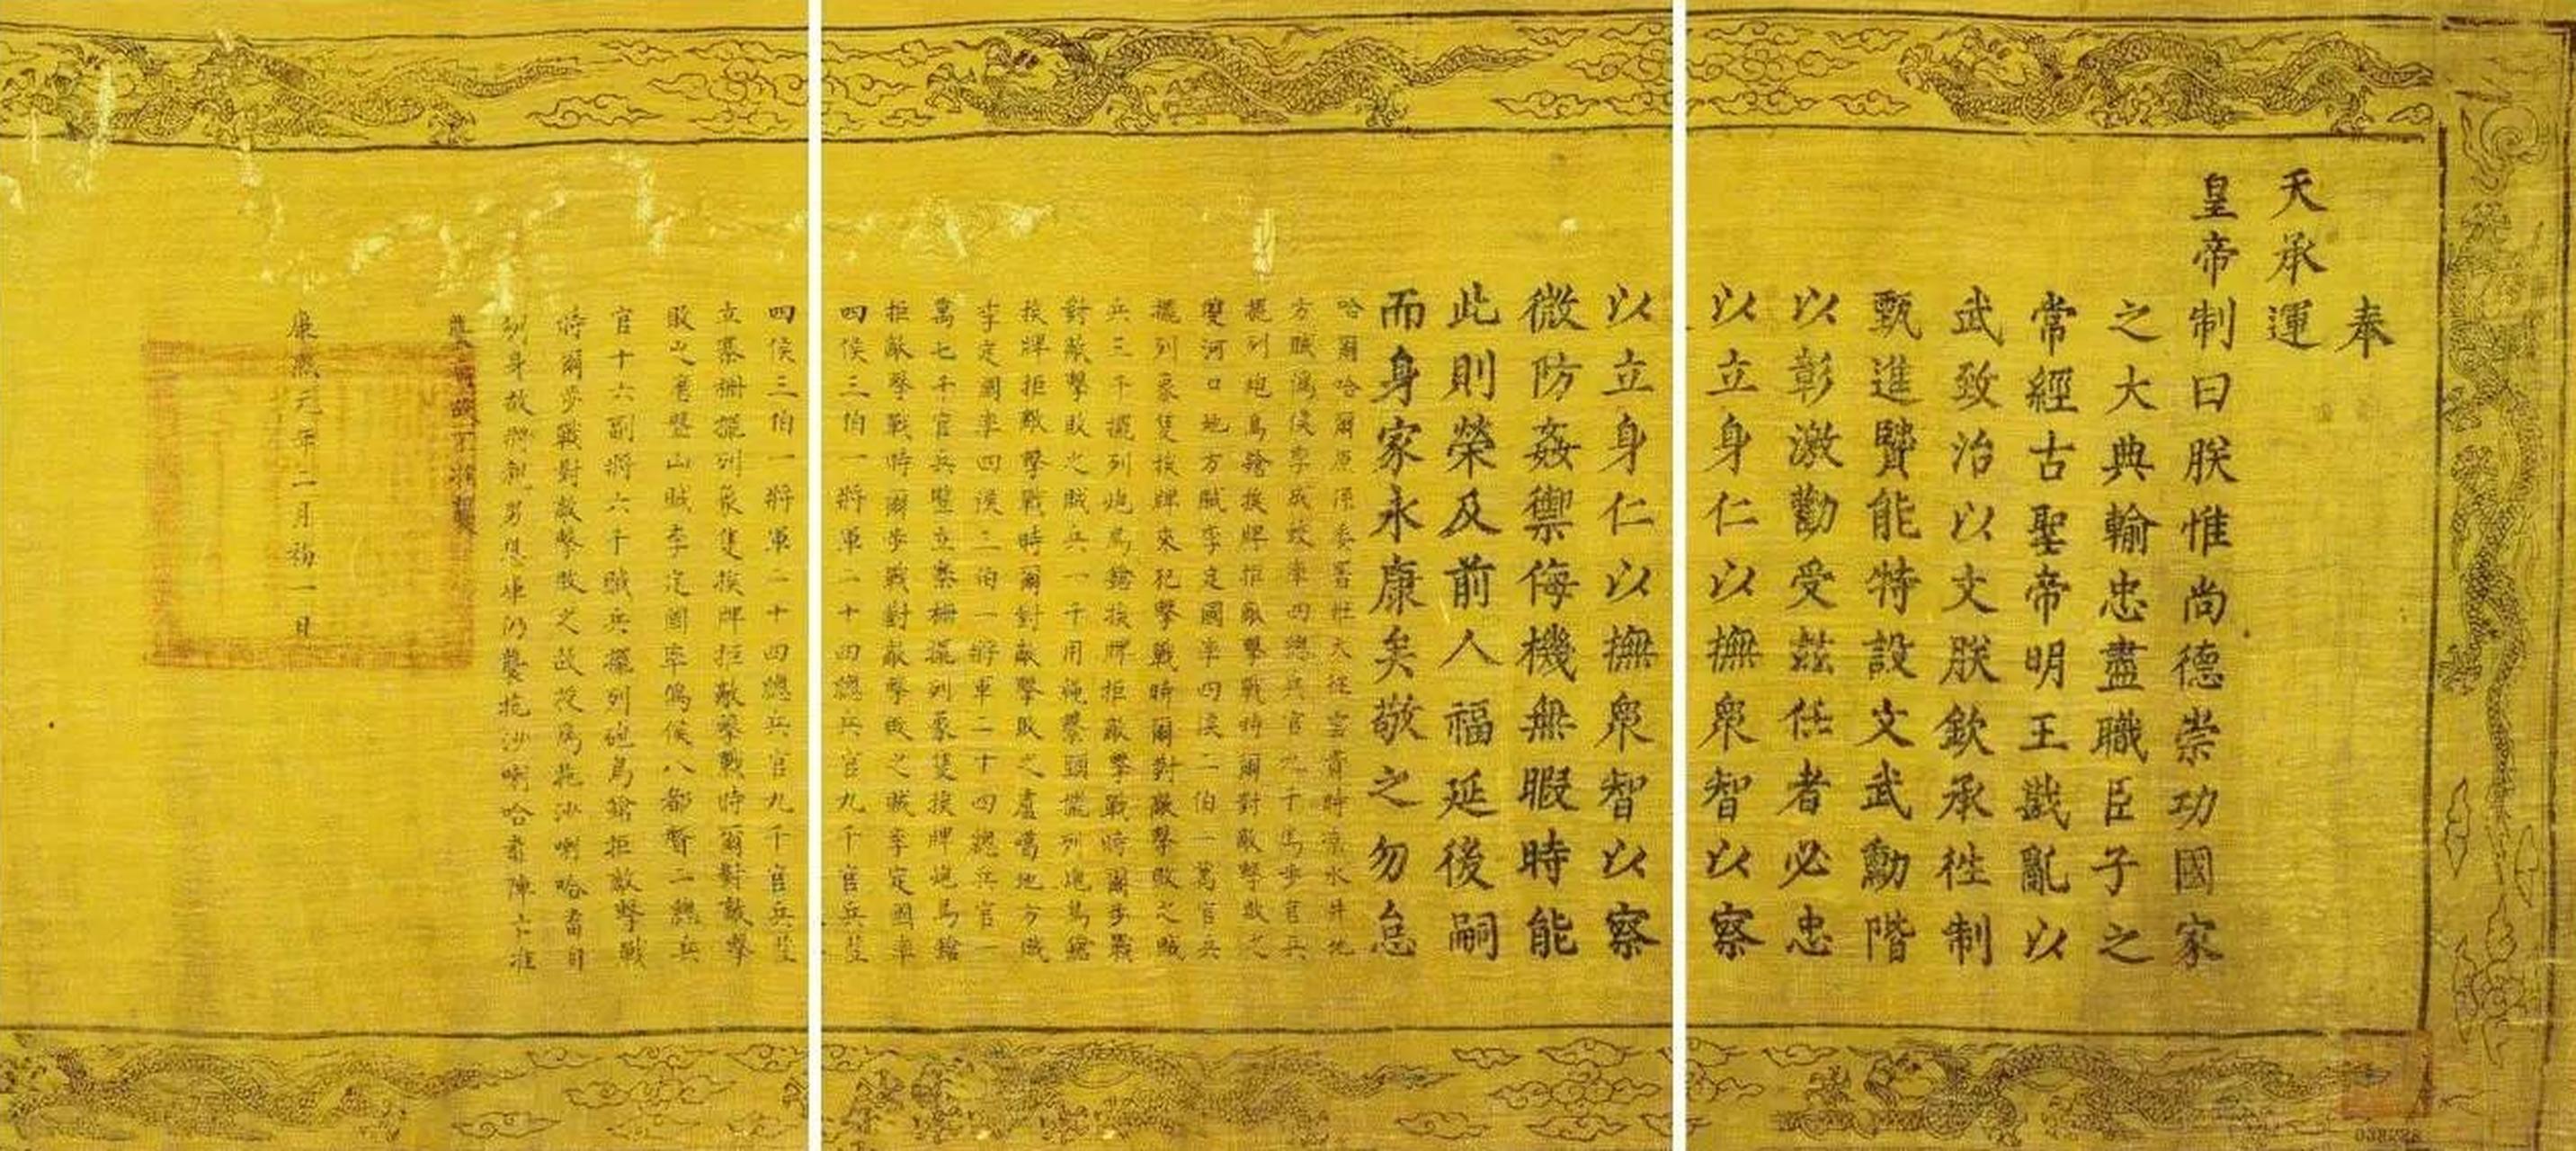 奉
天承運
皇帝制曰朕惟尚德崇功國家
之大典輸忠盡職臣子之
常經古聖帝明王戡亂以
武致治以文朕欽承徃制
甄進賢能特設文武勳階
以彰激勸受茲任者必忠
以立身仁以撫衆智以察
以立身仁以撫衆智以察
微防姦禦侮機無暇時能
此則榮及前人福延後嗣
而身家永康矣敬之勿怠
哈爾哈爾原係委署壯大徃雲貴時涼水井地
方賊僞侯李成蛟率四總兵官九千馬步官兵
擺列炮鳥鎗挨牌拒敵擊戰時爾對敵擊敗之
雙河口地方賊李定國率四侯二伯一萬官兵
擺列象隻挨牌來犯擊戰時爾對敵擊敗之賊
兵三千擺列炮鳥鎗挨牌拒敵擊戰時爾步戰
對敵擊敗之賊兵一千用 擺列炮鳥鎗
挨牌拒敵擊戰時爾對敵擊敗之蘆噶地方賊
李定國率四侯三伯一將軍二十四總兵官一
萬七千官兵豎立寨柵擺列象隻挨牌炮鳥鎗
拒敵擊戰時爾步戰對敵擊敗之賊李定國率
四侯三伯一將軍二十四總兵官九千官兵豎
四侯三伯一將軍二十四總兵官九千官兵豎
立寨柵擺列象隻挨牌拒敵擊戰時爾對敵擊
敗之磨盤山賊李定國率僞侯八都督二總兵
官十六副將六千賊兵擺列炮鳥鎗拒敵擊戰
時爾步戰對敵擊敗之故授爲拖沙喇哈番日
後身故將親男 仍襲拖沙喇哈番陣亡准
襲 故不准襲
康熙元年二月初一日